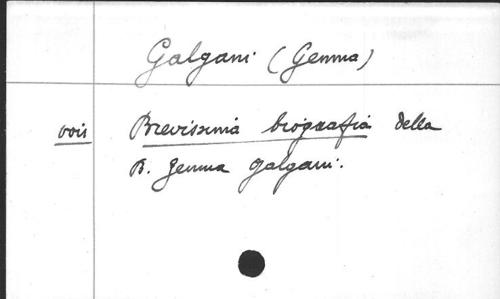 Galgani (Gemma)
voir Brevissima biografia della
B. Gemma Galgani.